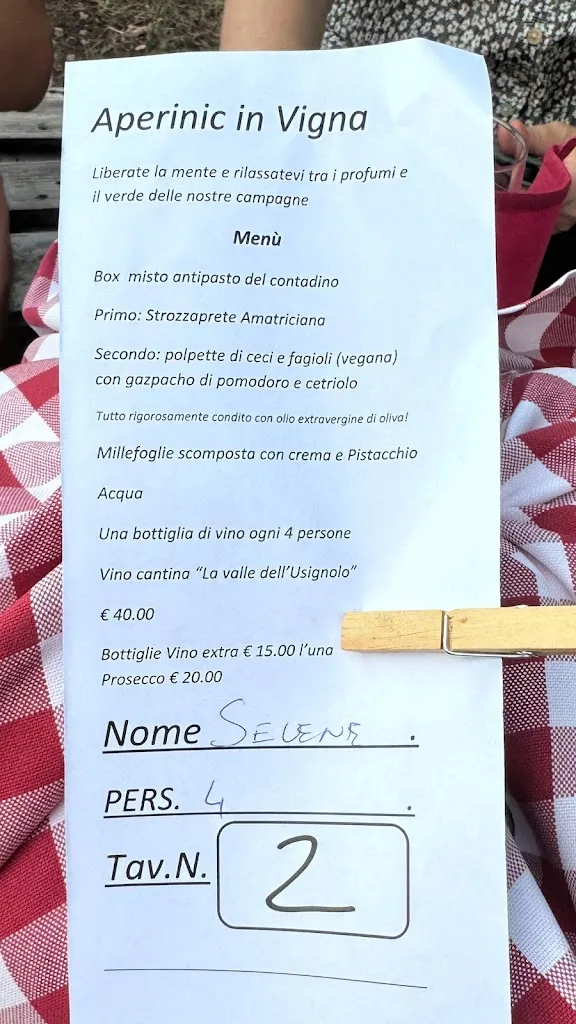 Aperinic in Vigna
Liberate la mente e rilassatevi tra i profumi e
il verde delle nostre campagne
Menù
Box misto antipasto del contadino
Primo: Strozzaprete Amatriciana
Secondo: polpette di ceci e fagioli (vegana)
con gazpacho di pomodoro e cetriolo
Tutto rigorosamente condito con olio extravergine di oliva!
Millefoglie scomposta con crema e Pistacchio
Acqua
Una bottiglia di vino ogni 4 persone
Vino cantina "La valle dell'Usignolo"
€ 40.00
Bottiglie Vino extra € 15.00 l'una
Prosecco € 20.00
Nome SELENE.
PERS. 4.
Tav.N. 2